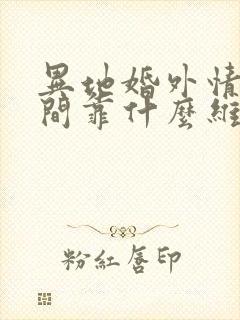 異地婚外情
間靠什麼維
粉紅唇印